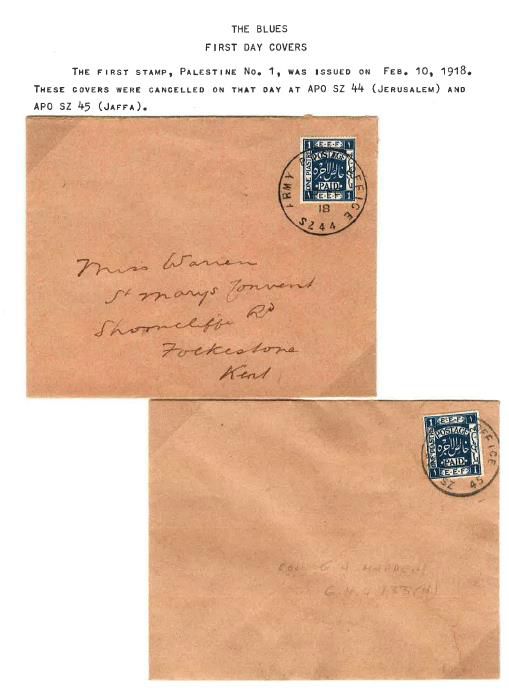 THE BLUES
FIRST DAY COVERS
THE FIRST STAMP, PALESTINE NO. 1, WAS ISSUED ON FEB. 10, 1918.
THESE COVERS WERE CANCELLED ON THAT DAY AT APO SZ 44 (JERUSALEM) AND
APO SZ 45 (JAFFA).
E.E.F.
POSTAGE
خالص الاجرة
PAID
E.E.F.
ONE PIASTRE
1
1
ARMY
OFFICE
18
SZ44
Miss Warren
St Marys Convent
Shorncliffe Rd
Folkestone
Kent
E.E.F.
POSTAGE
خالص الاجرة
PAID
E.E.F.
ONE PIASTRE
1
1
OFFICE
SZ 45
G.H.Q